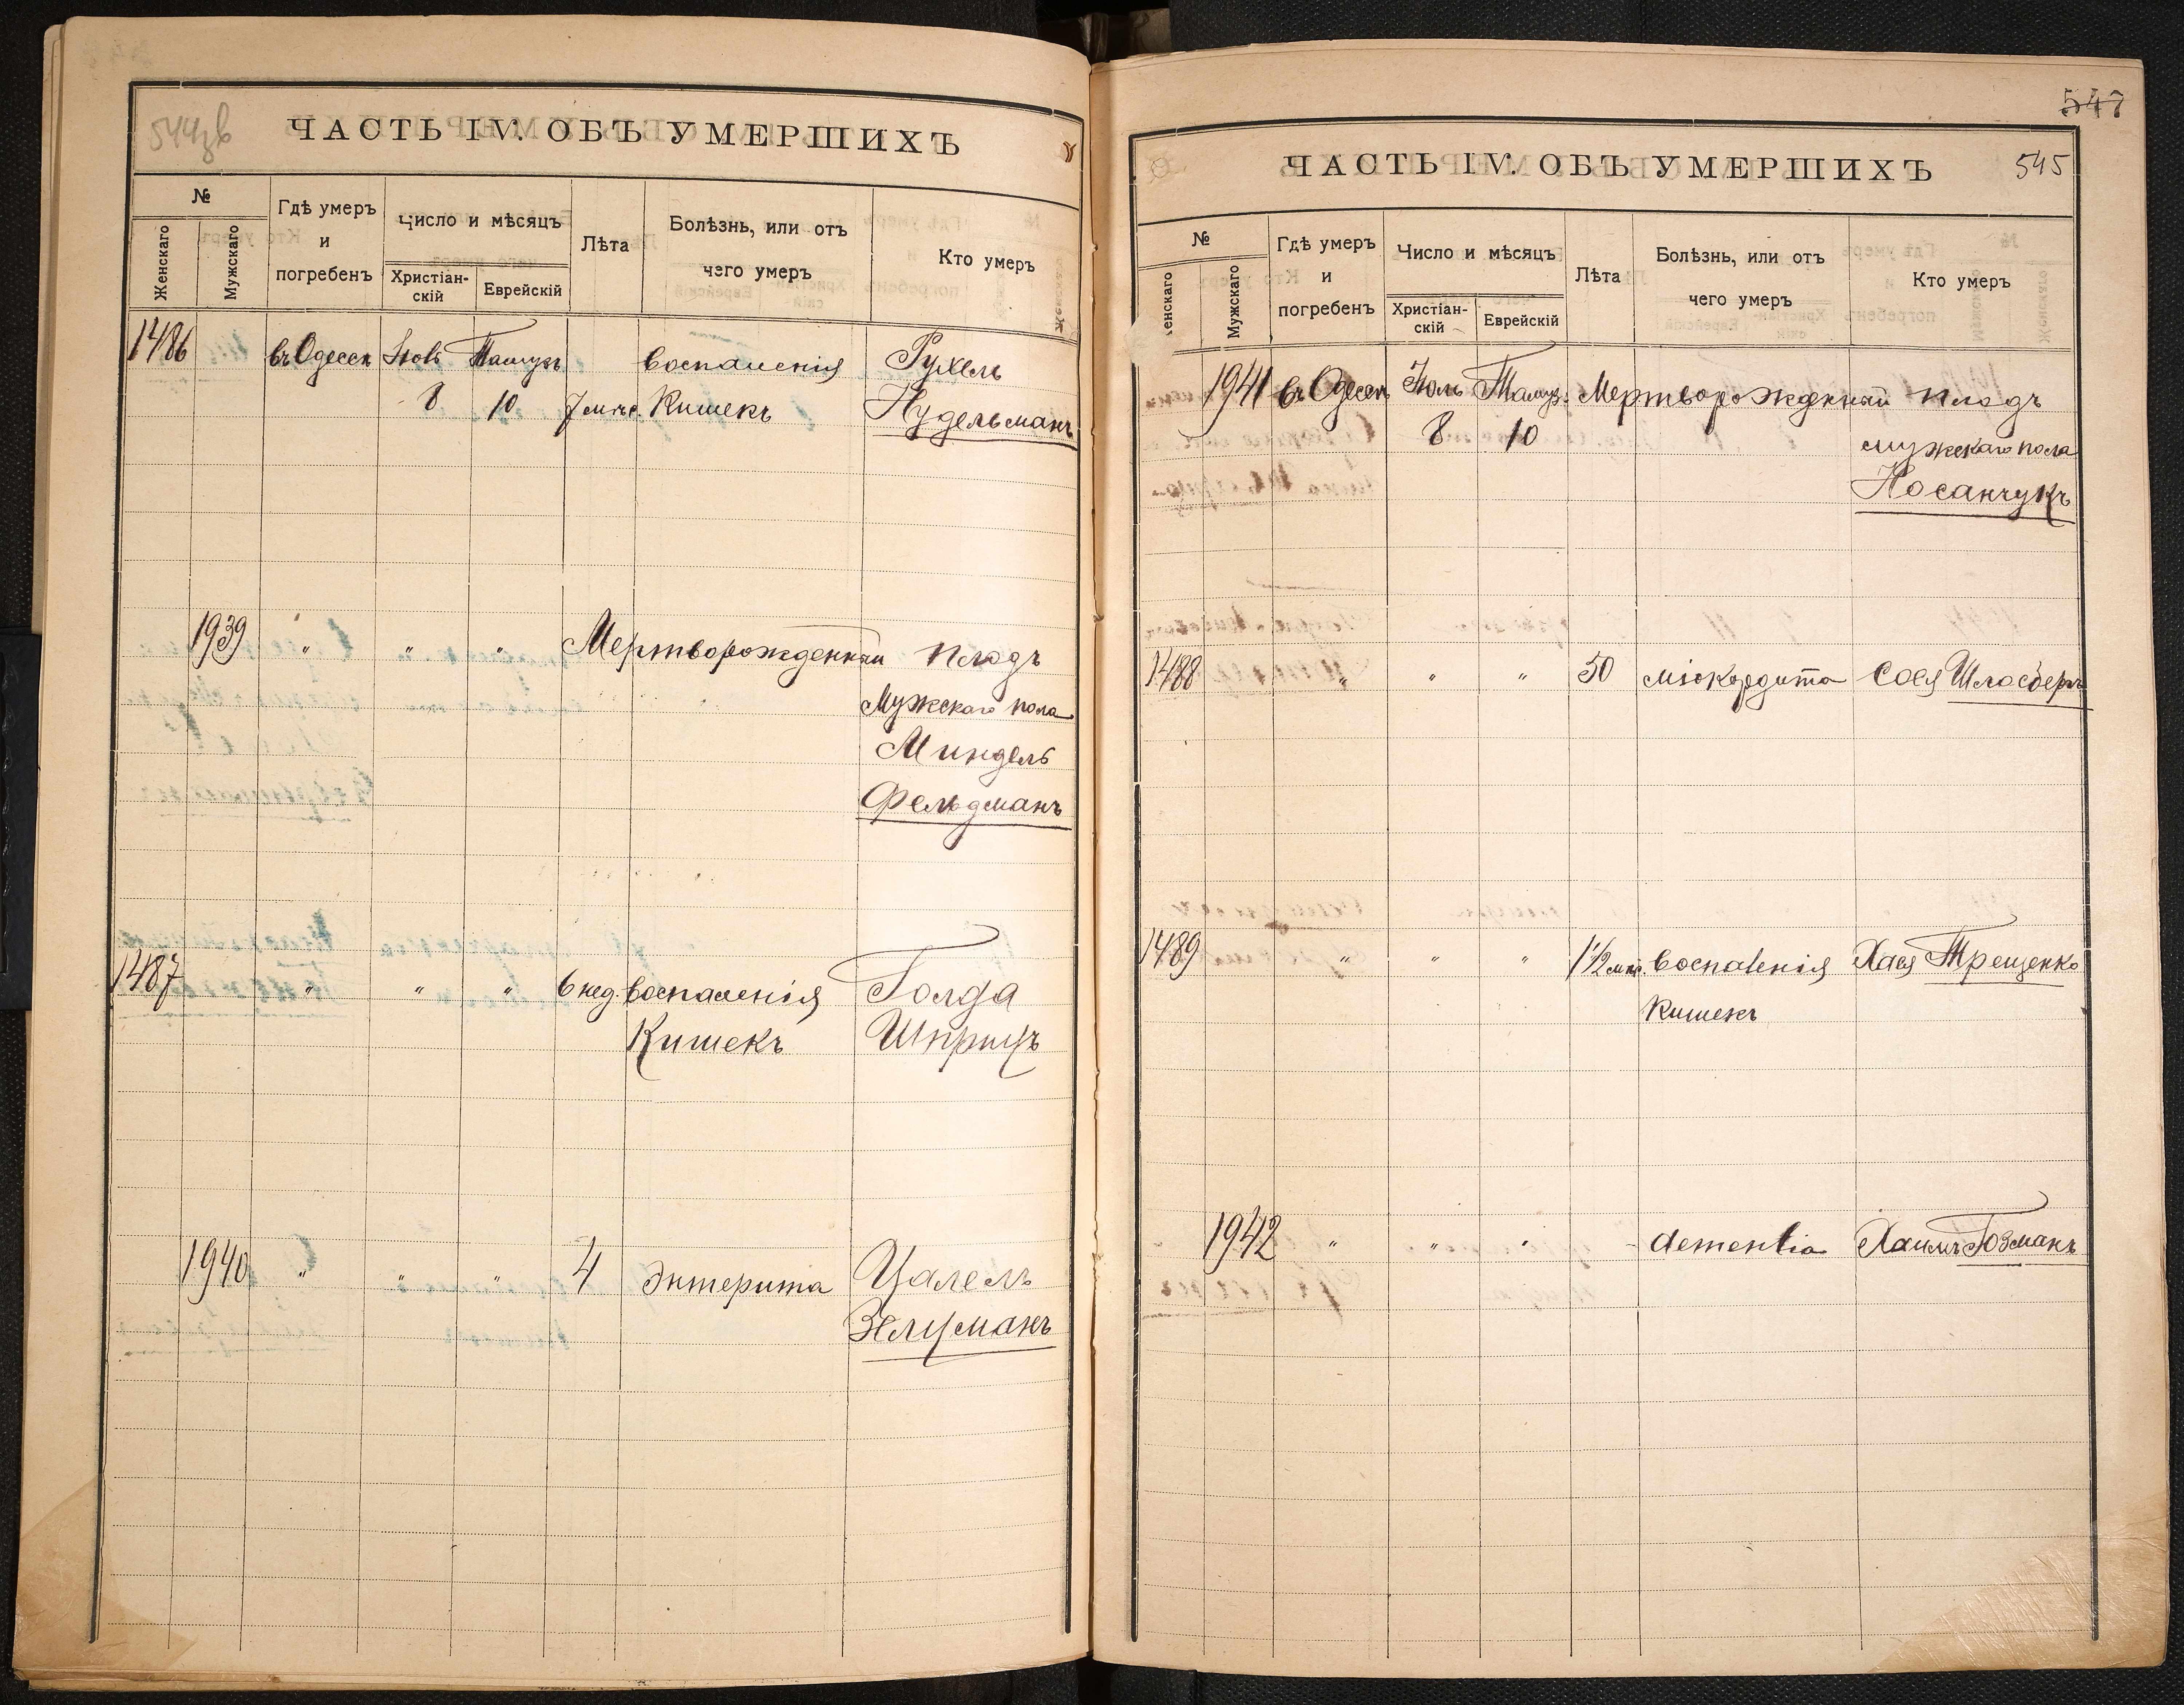 544зв
ЧАСТЬ IV. ОБЪ УМЕРШИХЪ
№
Женскаго
Мужскаго
Гдѣ умеръ
и
погребенъ
Число и мѣсяцъ
Христіан-
скій
Еврейскій
Лѣта
Болѣзнь, или отъ
чего умеръ
Кто умеръ
1486 въ Одессѣ Іюль Тамузъ воспаленія Рухель
8 10 7 мѣс. Кишекъ Нудельманъ
1939 " " " Мертворожденный плодъ
Мужскаго пола
Миндель
Фельдманъ
1487 " " " 6 нед. воспаленія Голда
Кишекъ Шприцъ
1940 " " " 4 Энтерита Цалель
Зельцманъ
547
ЧАСТЬ IV. ОБЪ УМЕРШИХЪ 545
№
енскаго
Мужскаго
Гдѣ умеръ
и
погребенъ
Число и мѣсяцъ
Христіан-
скій
Еврейскій
Лѣта
Болѣзнь, или отъ
чего умеръ
Кто умеръ
1941 въ Одессѣ Іюль Тамуз. Мертворожденный плодъ
8 10 мужскаго пола
Носанчукъ
1488 " " " 50 міокардита Сося Шлосбергъ
1489 " " " 1 1/2 мѣс. Воспаленія Хася Трещенко
Кишекъ
1942 " " " - dementia Хаимъ Гозманъ